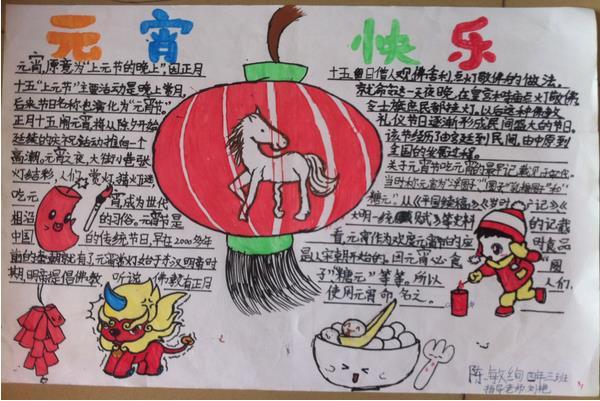 元宵 快乐
元宵,原意为"上元节的晚上",因正月
十五"上元节"主要活动是晚上赏月,
后来节日名称也演化为"元宵节"。
正月十五闹元宵,将从除夕开始
延续的庆祝活动推向一个
高潮。元宵之夜,大街小巷张
灯结彩,人们赏灯,猜灯谜,
吃元宵成为世代
相沿的习俗。元宵节是
中国的传统节日,早在2000多年
前的秦朝就有了元宵赏灯始于东汉明帝时
期,明帝提倡佛教,听说佛教有正月
十五日僧人观佛舍利,点灯敬佛的做法,
就命令这一天夜晚,在皇宫和寺庙点灯敬佛,
令士族庶民都挂灯。以后这种佛教
礼仪节日逐渐形成民间盛大的节日。
该节经历由宫廷到民间,由中原到
全国的发展过程。
关于元宵节吃元宵的最早记载见于宋代。
当时称元宵为
糖元"。从《平园续稿》《岁时广记》《
大明一统赋》等史料的记载
看,元宵作为欢度元宵节的应时食品
是从宋朝开始的。因元宵必食"圆
子"糖元"等等。所以人们,
使用元宵命名之。
陈敏绚 四年三班
指导老师 刘艳